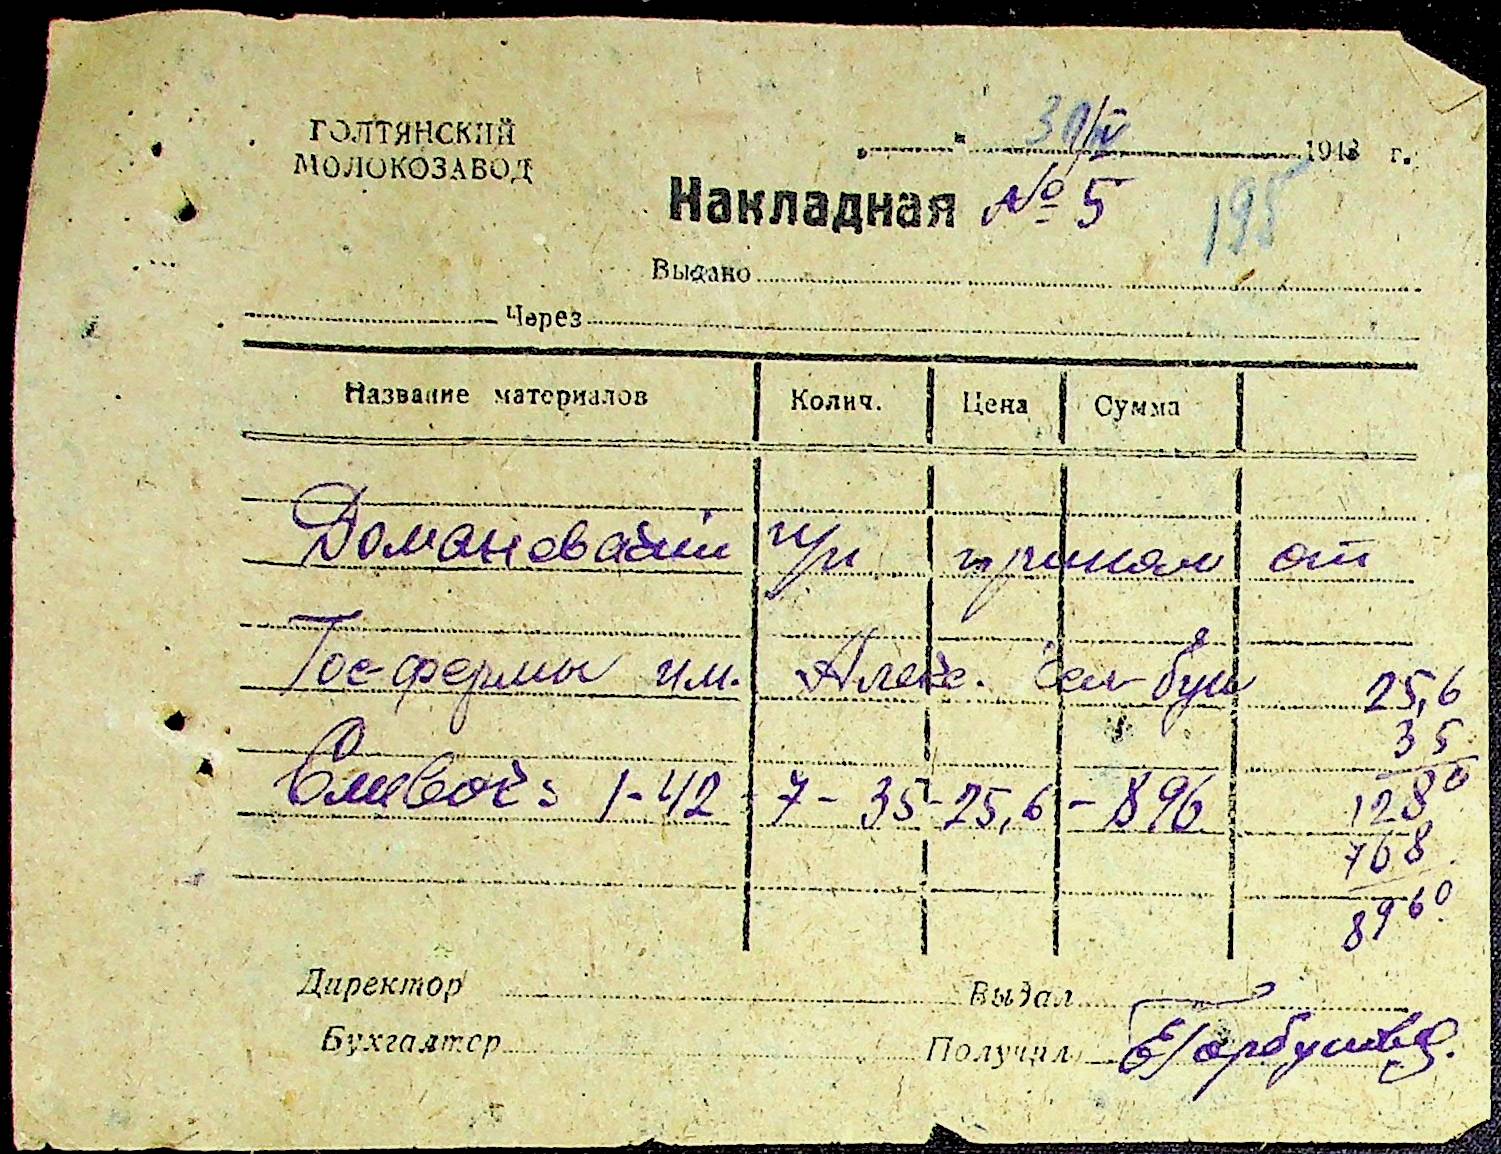 ГОЛТЯНСКИЙ
МОЛОКОЗАВОД
30/IV 1943 г.
Накладная № 5
195
Выдано
Через
Название материалов Колич. Цена Сумма
п/п принял от
Госфермы им. Алекс. 25,6
35
1-42 7 - 35 - 25,6 - 896 1280
768
8960
Директор Выдал
Бухгалтер Получил